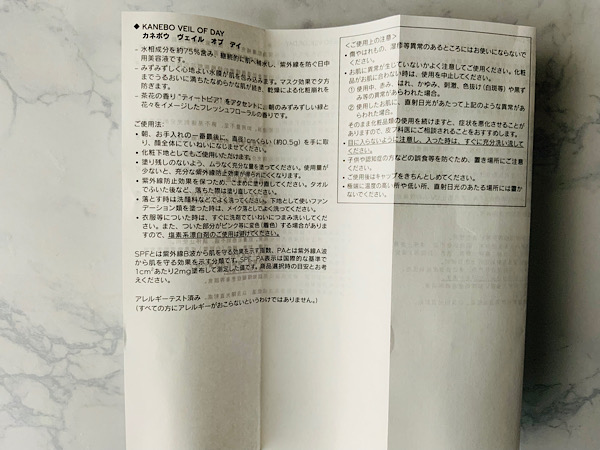 ◆ KANEBO VEIL OF DAY
カネボウ ヴェイル オブ デイ
- 水相成分を約75%含み、継続的に肌へ補水し、紫外線を防ぐ日中
用美容液です。
- みずみずしく心地よい水膜が肌を包み込みます。マスク効果で夕方
までうるおいに満ちたなめらかな肌が続き、乾燥による化粧崩れを
防ぎます。
- 茶花の香り“ティートピア”をアクセントに、朝のみずみずしい緑と
花々をイメージしたフレッシュフローラルの香りです。
ご使用法:
• 朝、お手入れの一番最後に、直径/cmくらい(約0.5g)を手に取
り、顔全体にていねいになじませてください。
• 化粧下地としてもご使用いただけます。
• 塗り残しのないよう、ムラなく充分な量を塗ってください。使用量が
少ないと、充分な紫外線防止効果が得られにくくなります。
• 紫外線防止効果を保つため、こまめに塗り直してください。タオル
でふいた後など、落ちた際は塗り直してください。
• 落とす時は洗顔料などでよく洗ってください。下地として使いファン
デーション類を塗った時は、メイク落としでよく洗ってください。
• 衣服等についた時は、すぐに洗剤でていねいにつまみ洗いしてくだ
さい。また、ついた部分がピンク等に変色(着色)する場合がありま
すので、塩素系漂白剤のご使用は避けてください。
SPFとは紫外線B波から肌を守る効果を示す指数、PAとは紫外線A波
から肌を守る効果を示す分類です。SPF、PA表示は国際的な基準で
1cm²あたり2mg塗布して測定した値です。商品選択時の目安とお考
えください。
アレルギーテスト済み
(すべての方にアレルギーがおこらないというわけではありません。)
<ご使用上の注意>
• 傷やはれもの、湿疹等異常のあるところにはお使いにならないで
ください。
• お肌に異常が生じていないかよく注意してご使用ください。化粧
品がお肌に合わない時は、使用を中止してください。
① 使用中、赤み、はれ、かゆみ、刺激、色抜け(白斑等)や黒ず
み等の異常があらわれた場合。
② 使用したお肌に、直射日光があたって上記のような異常があ
らわれた場合。
そのまま化粧品類の使用を続けますと、症状を悪化させることが
ありますので、皮フ科医にご相談されることをおすすめします。
• 目に入らないように注意し、入った時は、すぐに充分洗い流して
ください。
• 子供や認知症の方などの誤食等を防ぐため、置き場所にご注意
ください。
• ご使用後はキャップをきちんとしめてください。
• 極端に温度の高い所や低い所、直射日光のあたる場所には置か
ないでください。